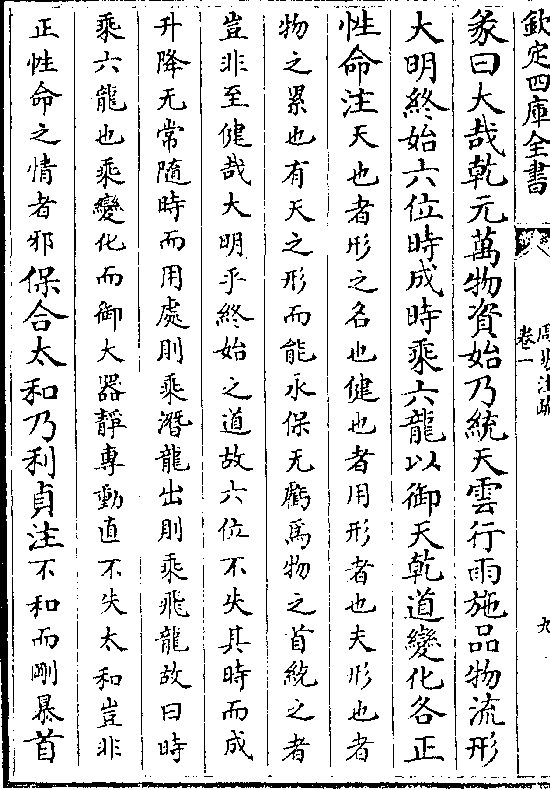 欽定四庫全書
周易注疏
卷一
九
彖曰大哉乾元萬物資始乃統天雲行雨施品物流形
大明終始六位時成時乘六龍以御天乾道變化各正
性命注天也者形之名也健也者用形者也夫形也者
物之累也有天之形而能永保无虧為物之首統之者
豈非至健哉大明乎終始之道故六位不失其時而成
升降无常隨時而用處則乘潛龍出則乘飛龍故曰時
乘六龍也乘變化而御大器靜專動直不失太和豈非
正性命之情者邪保合太和乃利貞注不和而剛暴首